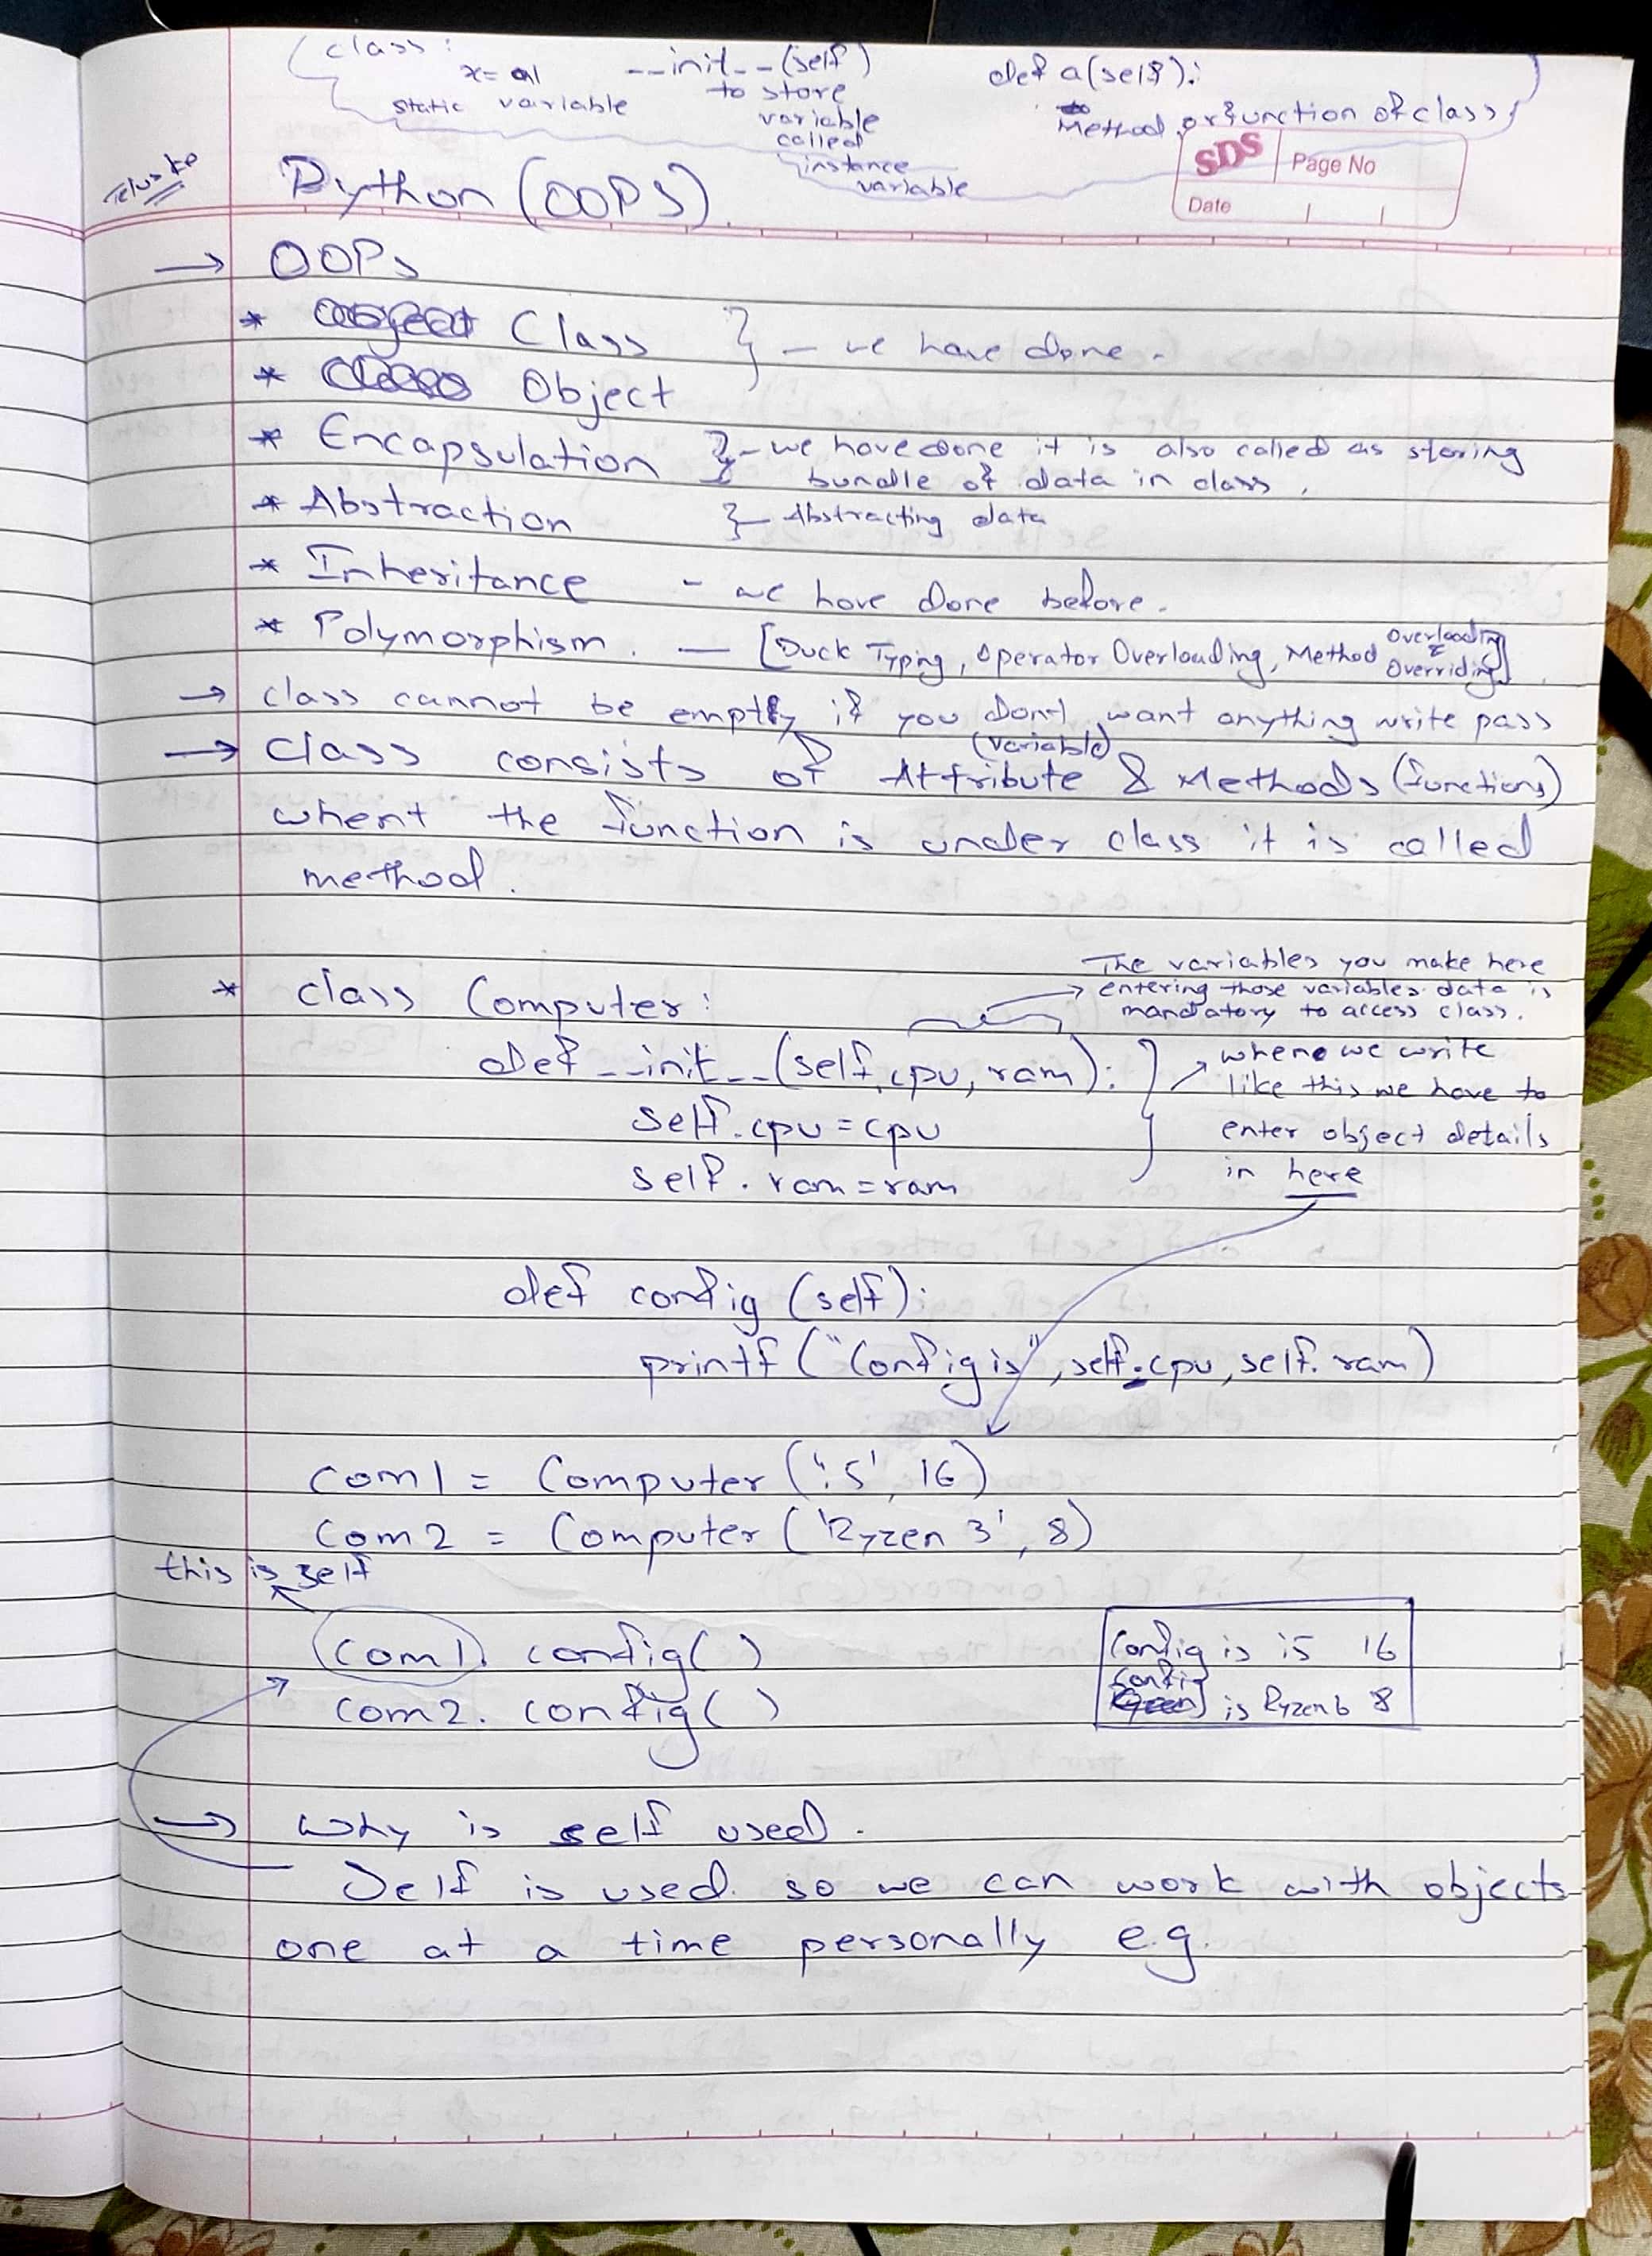 class:
x= al
static variable
__init__(self)
to store
variable
called
instance
variable
def a(self):
Method or function of class
SDS
Page No
Date
Telusko
Python (OOPS).
→ OOPs
* Class } - we have done.
* Object
* Encapsulation } - we have done it is also called as storing
bundle of data in class.
* Abstraction } - Abstracting data
* Inheritance - we have done before.
* Polymorphism. — [Duck Typing, Operator Overloading, Method Overloading & Overriding]
→ class cannot be empty if you dont want anything write pass
→ Class consists of Attribute (variable) & Methods (functions)
whent the function is under class it is called
method.
The variables you make here
→ entering those variables data is
mandatory to access class.
* class Computer:
def __init__(self, cpu, ram):
self.cpu = cpu
self.ram = ram
when we write
like this we have to
enter object details
in here
def config (self):
printf ("Config is", self.cpu, self.ram)
com1 = Computer ('i5', 16)
com2 = Computer ('Ryzen 3', 8)
this is self
com1. config( )
com2. config( )
Config is i5 16
Config is Ryzen 6 8
→ why is self used.
Self is used. so we can work with objects
one at a time personally e.g.